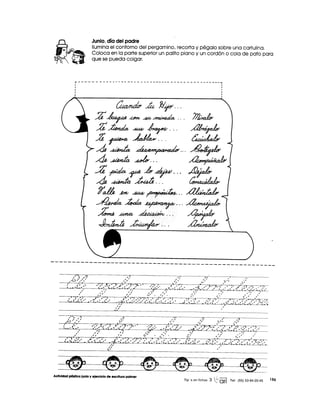 Junio. día del padre
Ilumina el contorno del pergamino, recorta y pégalo sobre una cartulina.
Coloca en la parte superior un palito plano y un cordón o cola de pato para
que se pueda colgar.
Cuando tu Hijo...
Te busque con su mirada... Míralo
Te tienda sus brazos... Abrázalo
Te quiera hablar... Escúchalo
Se sienta desamparado... Protégelo
Se sienta solo... Acompáñalo
Te pida que lo dejes... Déjalo
Se sienta triste... Consuélalo
Falle en sus propósitos... Aliéntalo
Pierda toda esperanza... Aconséjalo
Tome una decisión... Apóyalo
Intente triunfar... Anímalo
El valor y la fortaleza
de la familia es el padre.
El valor y la fortaleza
de la familia es el padre.